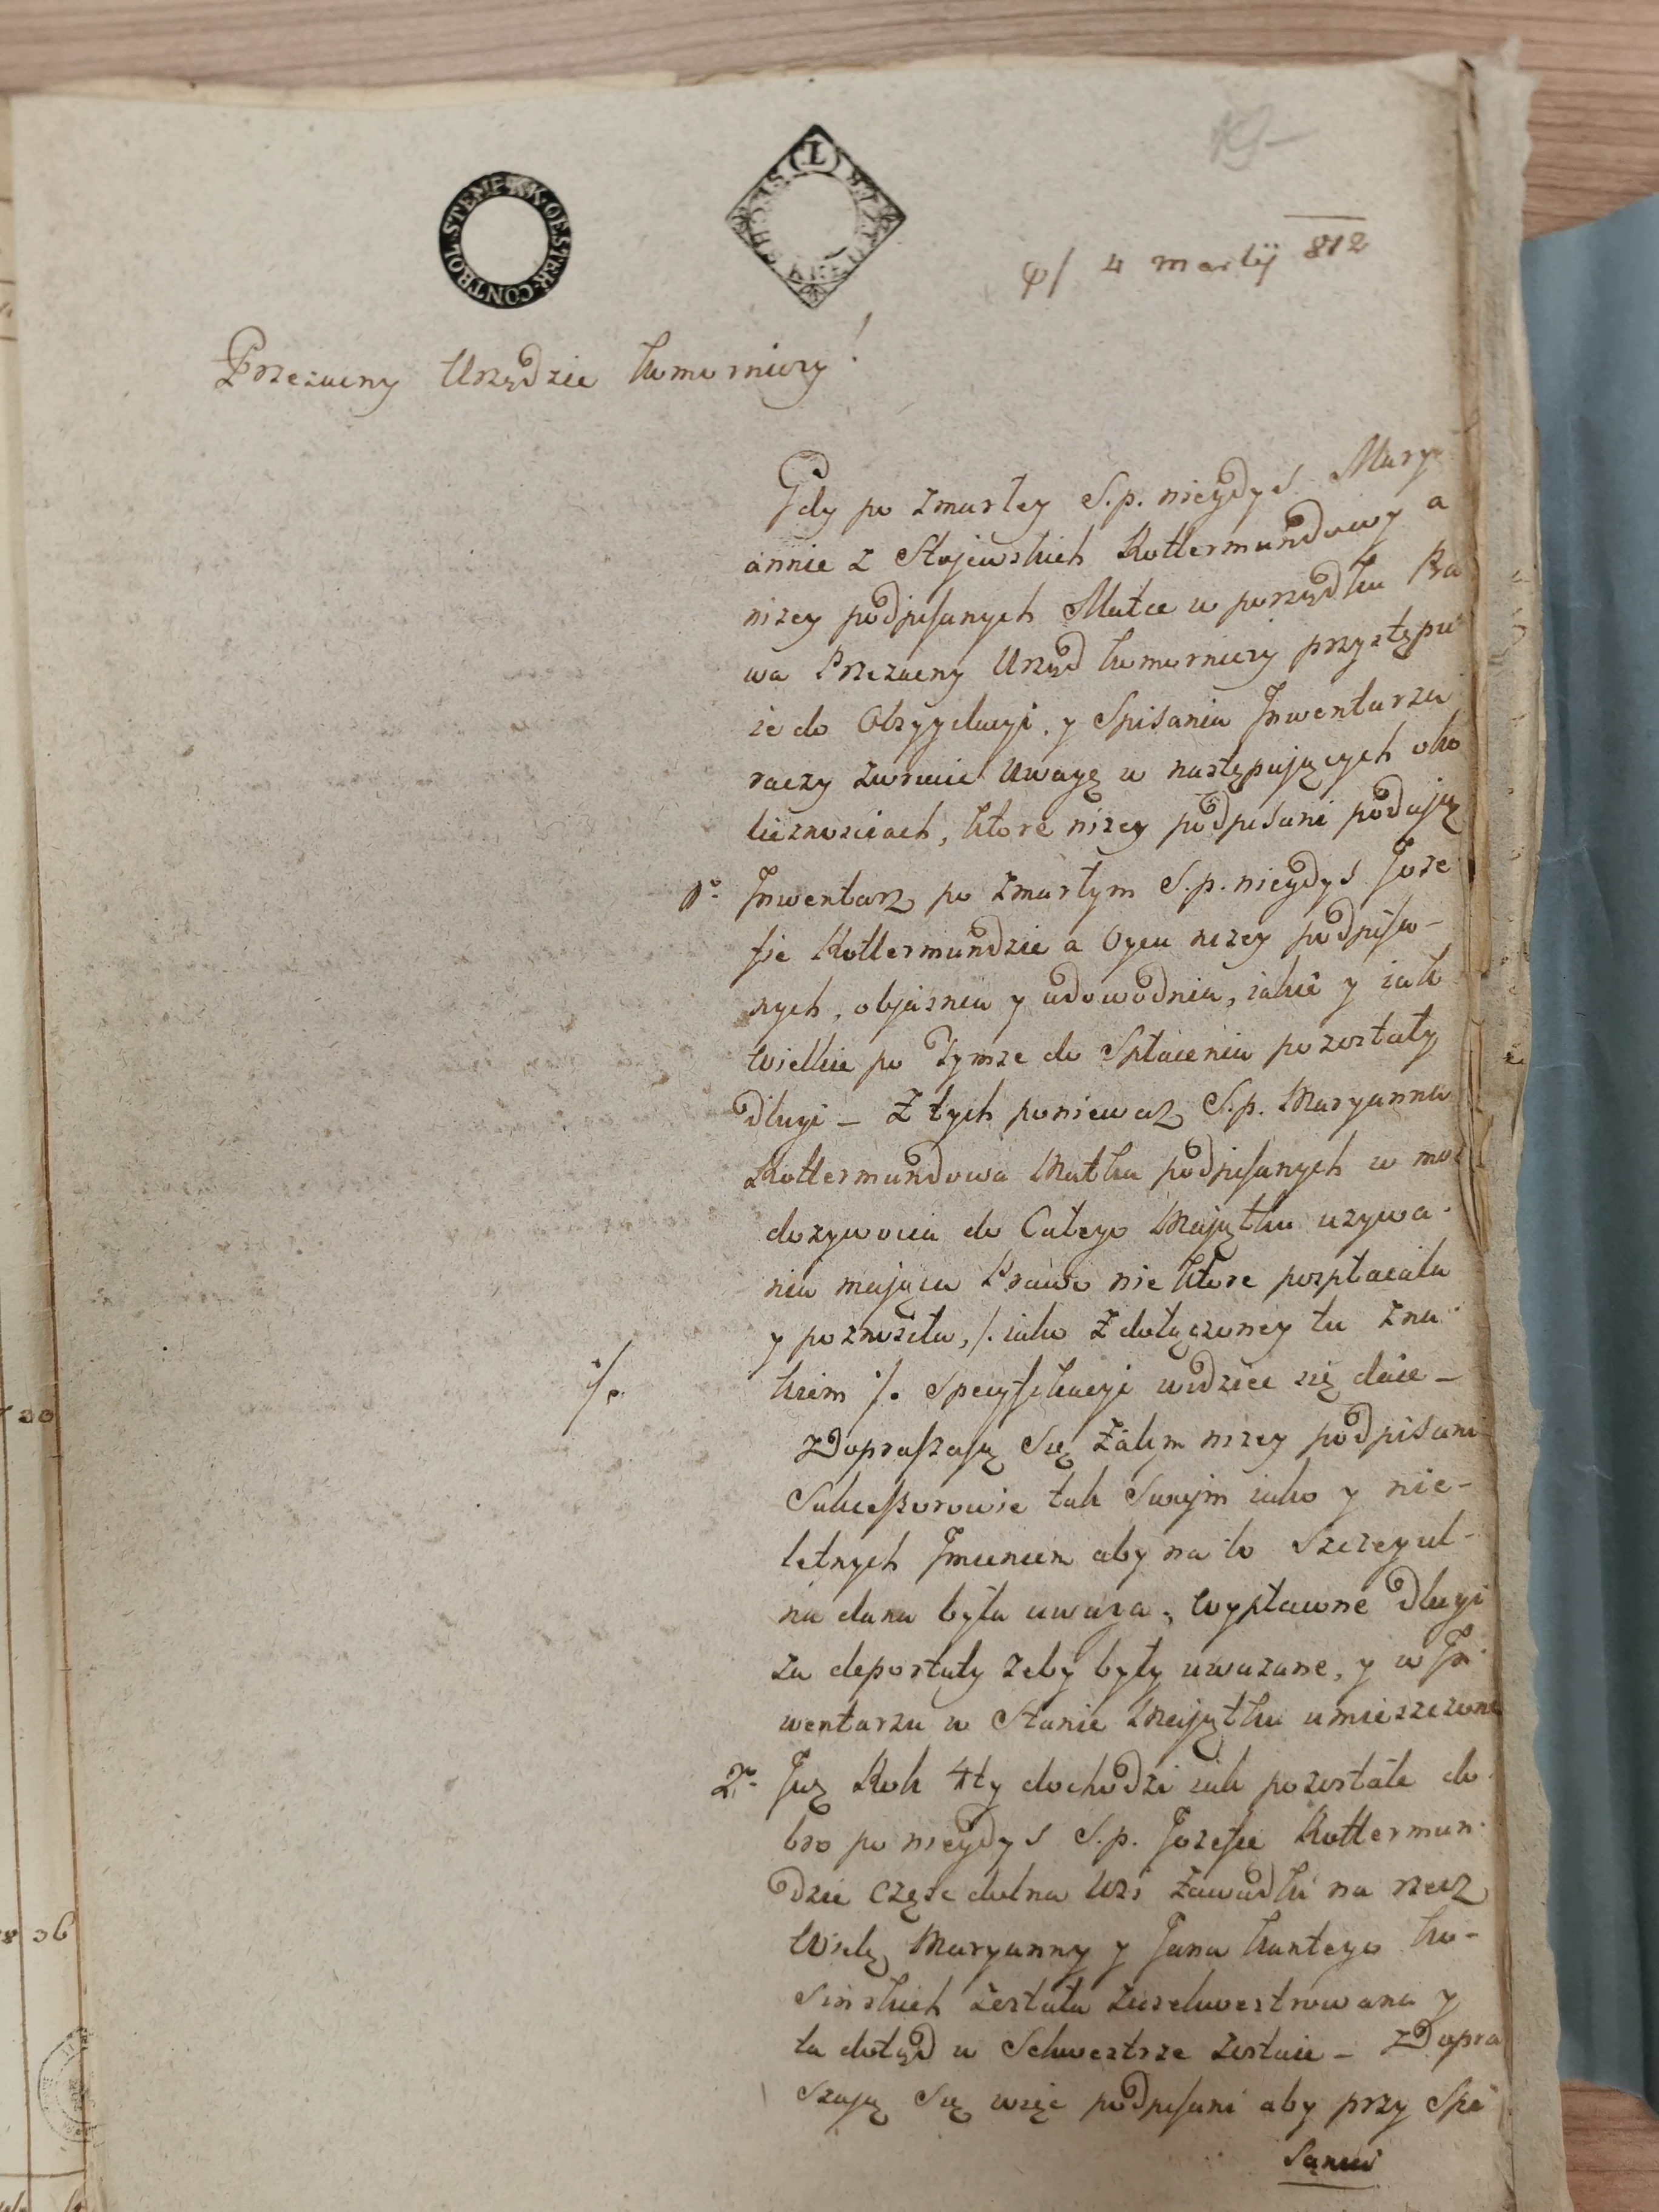 K.K. OESTER. CONTROL STEMP
4 martij 812
Przezacny Urzędzie komorniczy!
Gdy po zmarłey S.p. niegdys Mary-
annie z Stojewskich Kottermundowy a
nizey podpisanych Matce w porządku Pra
wa Przezacny Urząd komorniczy przystępu-
ie do Obsygilacyi, y Spisania Inwentarza
raczy zwrocic Uwagę w następujących oko
licznosciach, ktore nizey podpisani podają
1o Inwentarz po zmarłym S.p. niegdys Joze-
fie Kottermundzie a Oycu nizey podpisa-
nych, objasnia y udowodnia, iakie y iak
wielkie po Tymze do Spłacenia pozostały
Długi – Z tych poniewaz S.p. Maryanna
Kottermundowa Matka podpisanych w moc
dozywocia do Całego Majątku uzywa-
nia mająca Prawo nie ktore pospłacała
y poznosiła, /. iako z dołączoney tu zna-
·/. kiem ·/. Specyfikacyi widziec się daie –
zDopraszają Się Zatym nizey podpisani
Sukcessorowie tak Swym iako y nie-
letnych Jmieniem aby na to Szczegul-
na dana była uwaga, wypłacone Długi
za depozytały zeby były uwazane, y w In-
wentarzu w Stanie Majątku umieszczone
2o Juz Rok 4ty dochodzi iak pozostałe do-
bro po niegdys S.p. Jozefie Kottermun-
dzie częsc dolna Wsi Zawadki na rzecz
Wielz Maryanny y Jana kantego ko-
sinskich została zasekwestrowana y
ta dotąd w Sekwestrze zostaie – zDopra
szają Się więc podpisani aby przy Spi
saniu
30
8 36